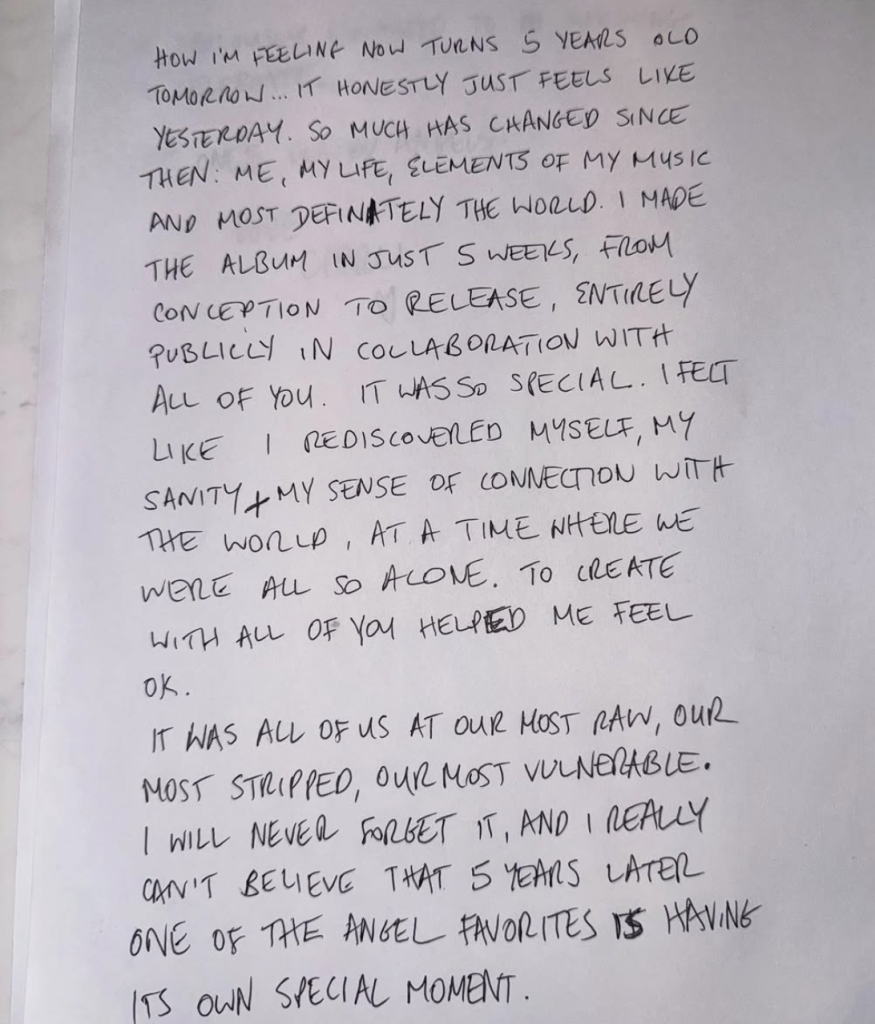 HOW I'M FEELING NOW TURNS 5 YEARS OLD
TOMORROW... IT HONESTLY JUST FEELS LIKE
YESTERDAY. SO MUCH HAS CHANGED SINCE
THEN: ME, MY LIFE, ELEMENTS OF MY MUSIC
AND MOST DEFINATELY THE WORLD. I MADE
THE ALBUM IN JUST 5 WEEKS, FROM
CONCEPTION TO RELEASE, ENTIRELY
PUBLICLY IN COLLABORATION WITH
ALL OF YOU. IT WAS SO SPECIAL. I FELT
LIKE I REDISCOVERED MYSELF, MY
SANITY + MY SENSE OF CONNECTION WITH
THE WORLD, AT A TIME WHERE WE
WERE ALL SO ALONE. TO CREATE
WITH ALL OF YOU HELPED ME FEEL
OK.
IT WAS ALL OF US AT OUR MOST RAW, OUR
MOST STRIPPED, OUR MOST VULNERABLE.
I WILL NEVER FORGET IT, AND I REALLY
CAN'T BELIEVE THAT 5 YEARS LATER
ONE OF THE ANGEL FAVORITES IS HAVING
ITS OWN SPECIAL MOMENT.